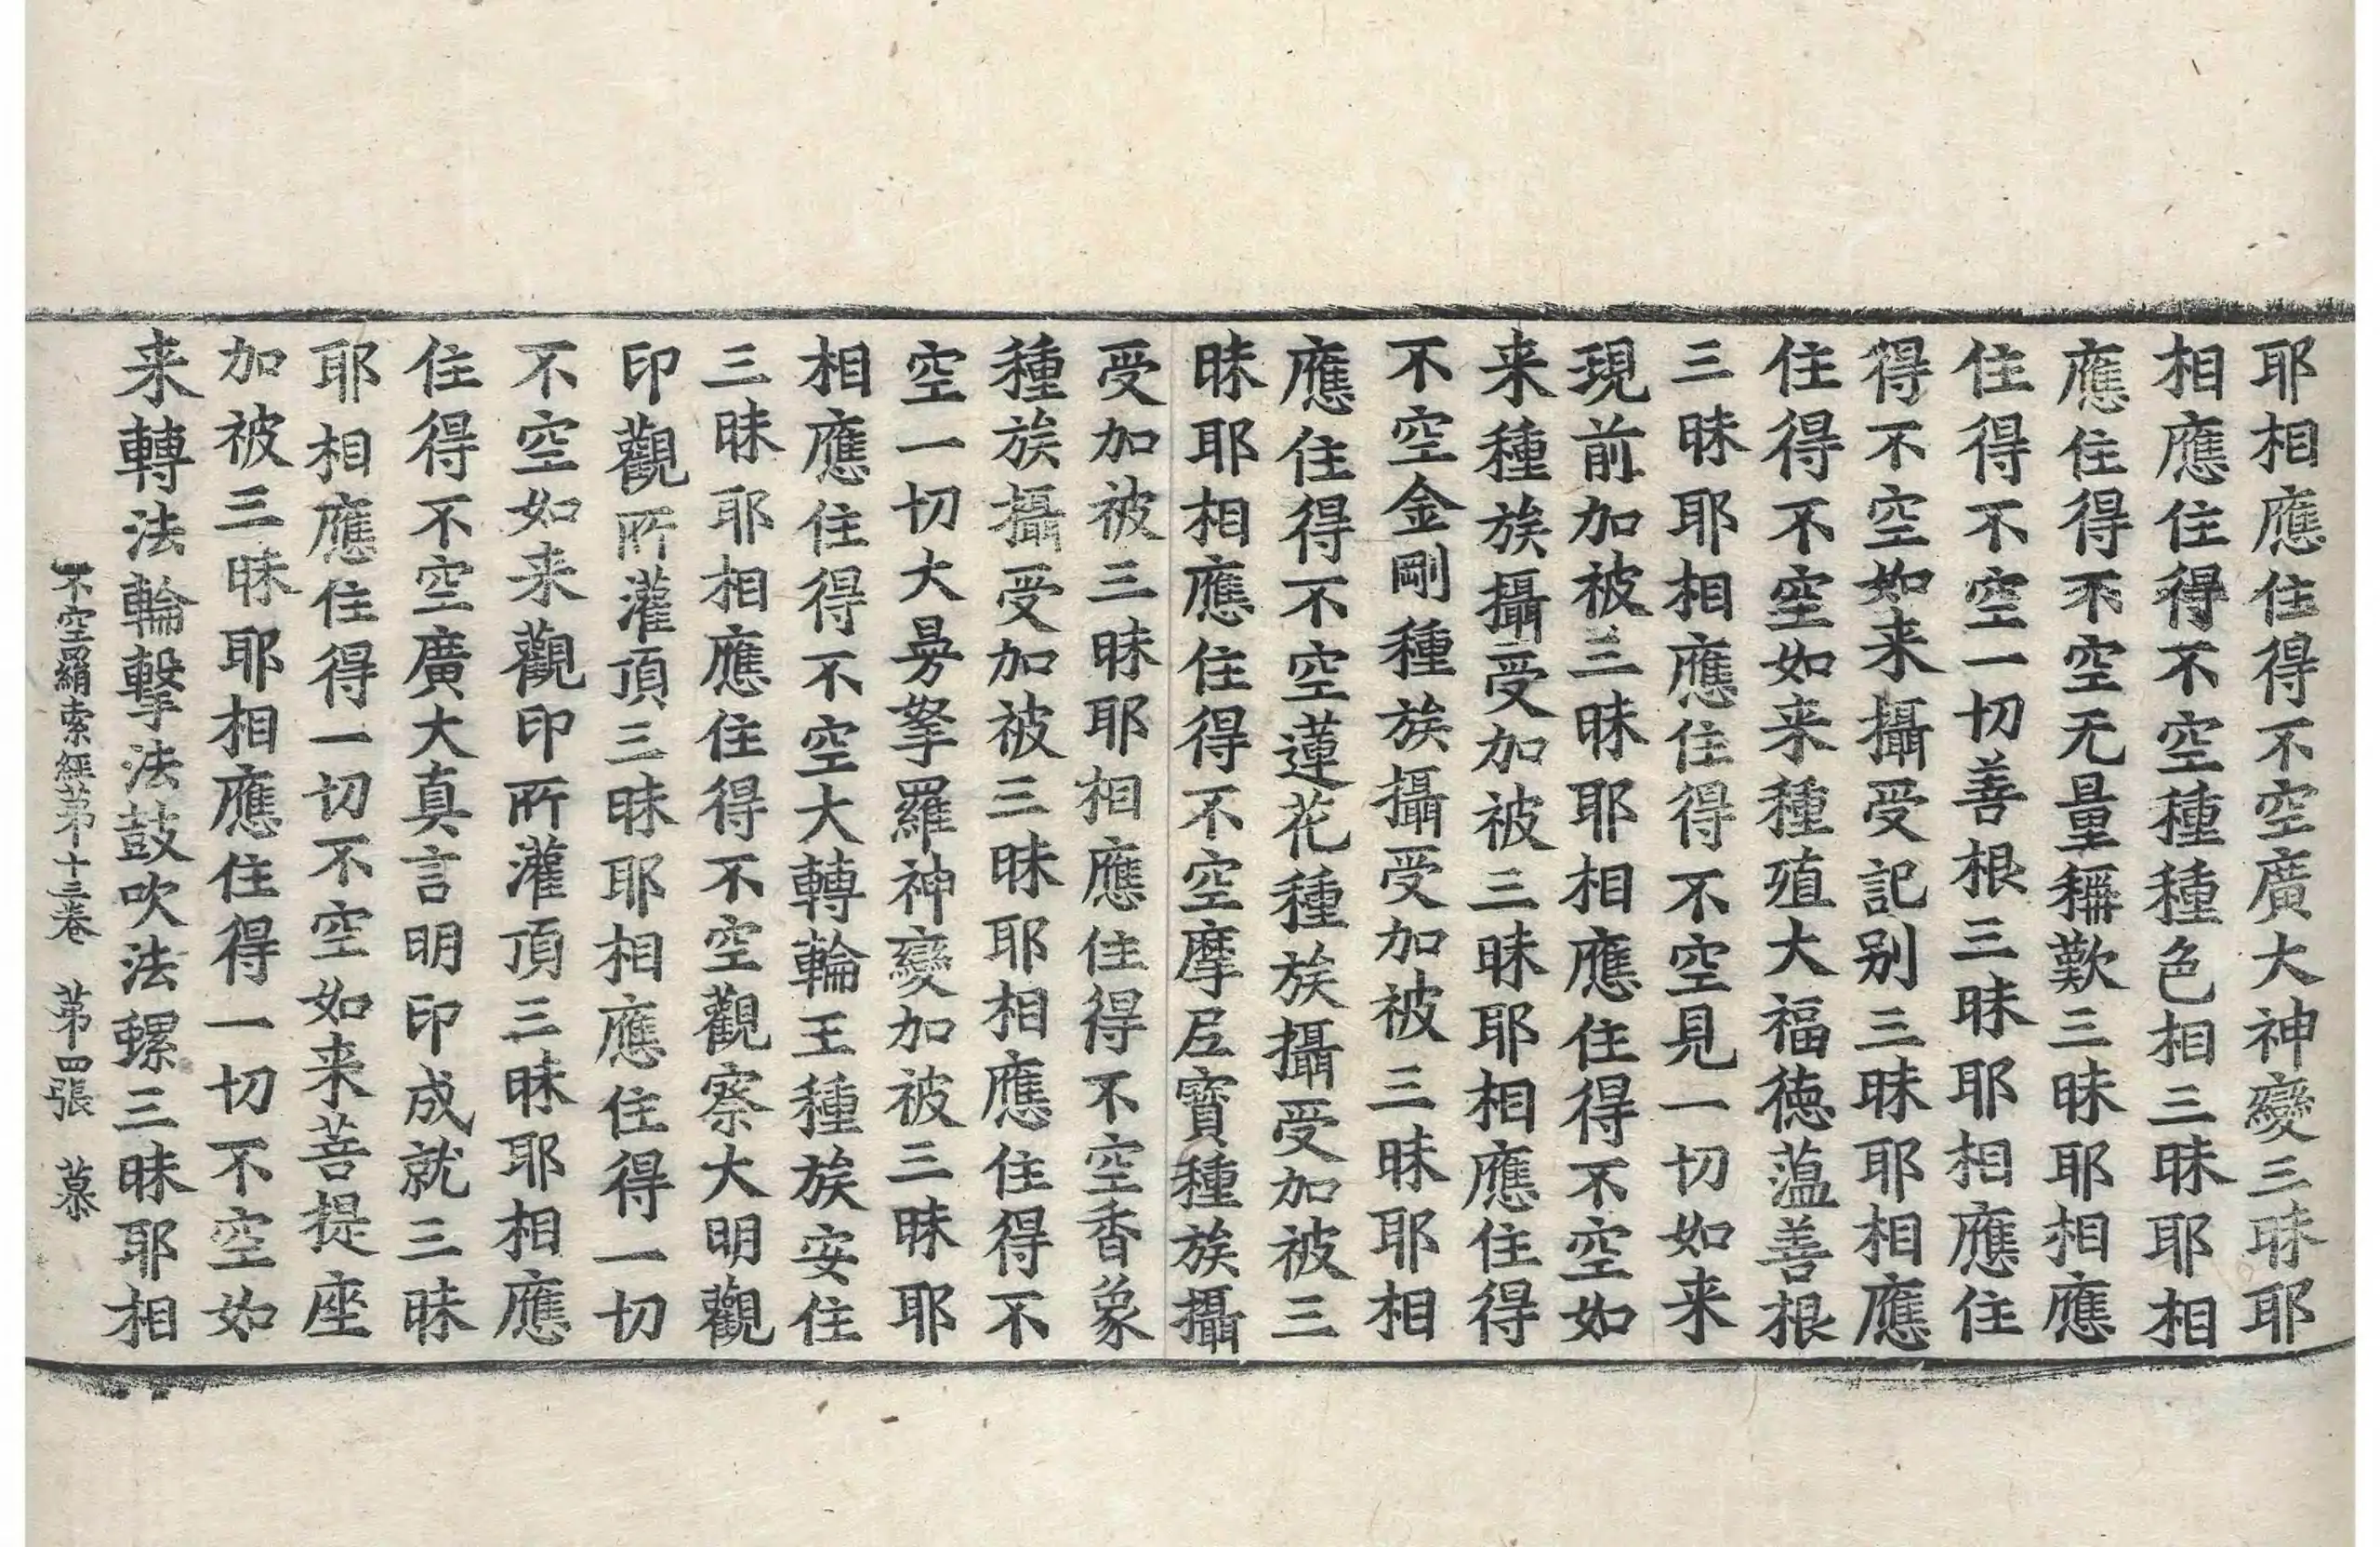 耶相應住得不空廣大神變三昧耶
相應住得不空種種色相三昧耶相
應住得不空无量稱歎三昧耶相應
住得不空一切善根三昧耶相應住
得不空如来攝受記别三昧耶相應
住得不空如来種殖大福德薀善根
三昧耶相應住得不空見一切如来
現前加被三昧耶相應住得不空如
来種族攝受加被三昧耶相應住得
不空金剛種族攝受加被三昧耶相
應住得不空蓮花種族攝受加被三
昧耶相應住得不空摩尼寶種族攝
受加被三昧耶相應住得不空香象
種族攝受加被三昧耶相應住得不
空一切大曼拏羅神變加被三昧耶
相應住得不空大轉輪王種族安住
三昧耶相應住得不空觀察大明觀
印觀所灌頂三昧耶相應住得一切
不空如来觀印所灌頂三昧耶相應
住得不空廣大真言明印成就三昧
耶相應住得一切不空如来菩提座
加被三昧耶相應住得一切不空如
来轉法輪擊法鼓吹法螺三昧耶相
不空羂索經苐十三卷 苐四張 慕